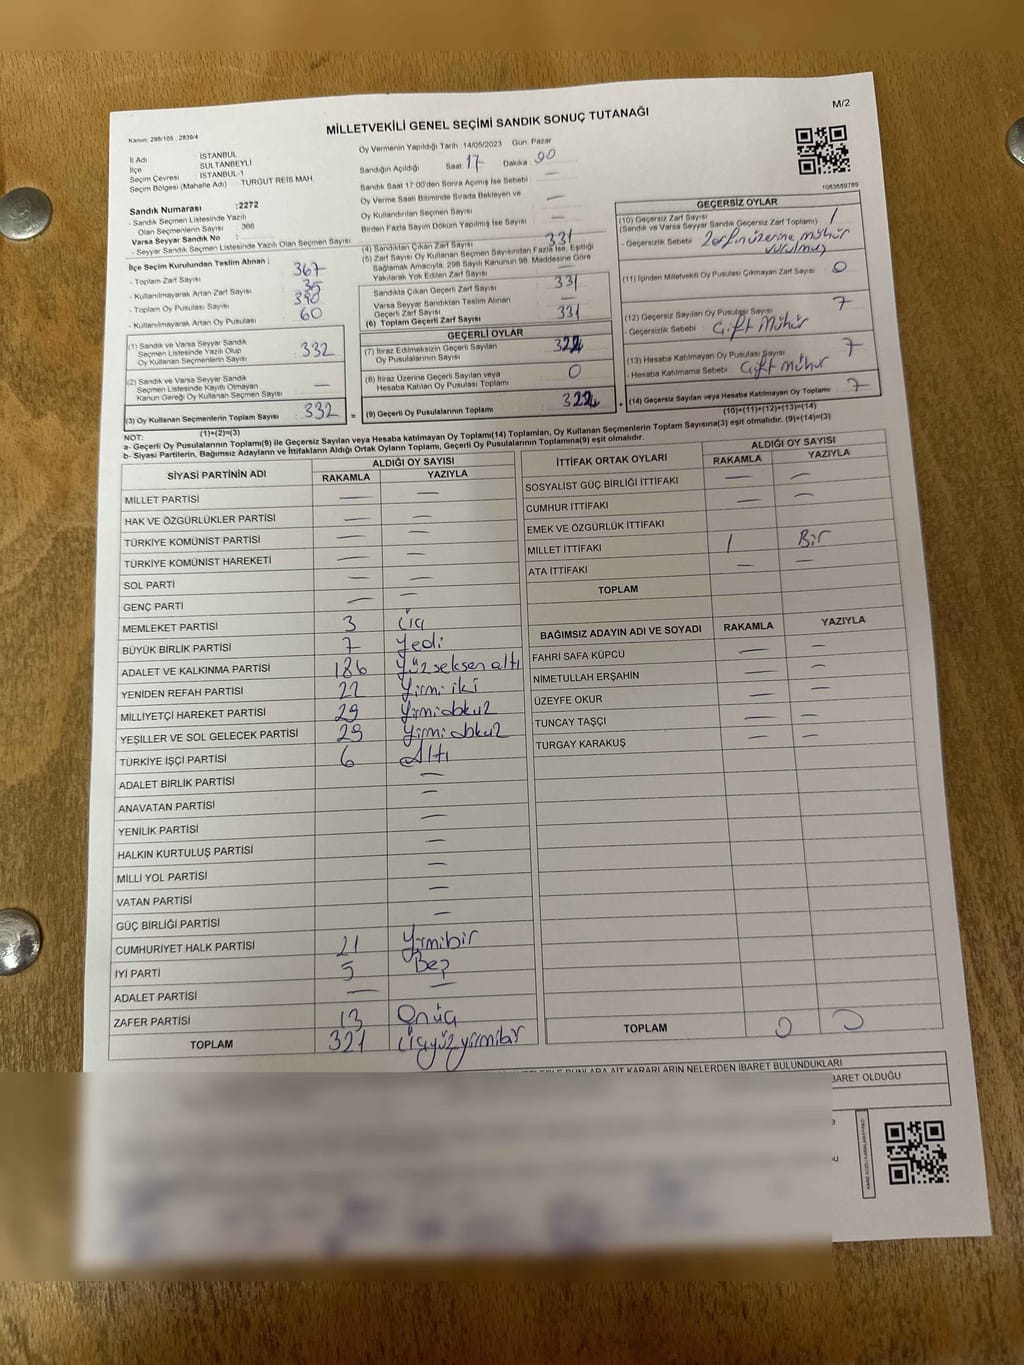 M/2
MİLLETVEKİLİ GENEL SEÇİMİ SANDIK SONUÇ TUTANAĞI
Kanun: 298/105 , 2839/4
İl Adı : İSTANBUL
İlçe : SULTANBEYLİ
Seçim Çevresi : İSTANBUL-1
Seçim Bölgesi (Mahalle Adı) : TURGUT REİS MAH.
Sandık Numarası :2272
- Sandık Seçmen Listesinde Yazılı
Olan Seçmenlerin Sayısı : 366
Varsa Seyyar Sandık No :
- Seyyar Sandık Seçmen Listesinde Yazılı Olan Seçmen Sayısı:
İlçe Seçim Kurulundan Teslim Alınan :
- Toplam Zarf Sayısı 367
- Kullanılmayarak Artan Zarf Sayısı 35
- Toplam Oy Pusulası Sayısı 390
- Kullanılmayarak Artan Oy Pusulası 60
(1) Sandık ve Varsa Seyyar Sandık
Seçmen Listesinde Yazılı Olup
Oy Kullanan Seçmenlerin Sayısı 332
(2) Sandık ve Varsa Seyyar Sandık
Seçmen Listesinde Kayıtlı Olmayan
Kanun Gereği Oy Kullanan Seçmen Sayısı —
(3) Oy Kullanan Seçmenlerin Toplam Sayısı 332 =
(1)+(2)=(3)
Oy Vermenin Yapıldığı Tarih :14/05/2023 Gün: Pazar
Sandığın Açıldığı Saat 17 Dakika 00
Sandık Saat 17:00'den Sonra Açılmış İse Sebebi : —
Oy Verme Saati Bitiminde Sırada Bekleyen ve
Oy Kullandırılan Seçmen Sayısı —
Birden Fazla Sayım Döküm Yapılmış İse Sayısı : —
(4) Sandıktan Çıkan Zarf Sayısı 331
(5) Zarf Sayısı Oy Kullanan Seçmen Sayısından Fazla İse, Eşitliği
Sağlamak Amacıyla, 298 Sayılı Kanunun 98. Maddesine Göre
Yakılarak Yok Edilen Zarf Sayısı —
Sandıkta Çıkan Geçerli Zarf Sayısı 331
Varsa Seyyar Sandıktan Teslim Alınan
Geçerli Zarf Sayısı —
(6) Toplam Geçerli Zarf Sayısı 331
GEÇERLİ OYLAR
(7) İtiraz Edilmeksizin Geçerli Sayılan
Oy Pusulalarının Sayısı
(8) İtiraz Üzerine Geçerli Sayılan veya
Hesaba Katılan Oy Pusulası Toplamı 0
(9) Geçerli Oy Pusulalarının Toplamı +
1083689789
GEÇERSİZ OYLAR
(10) Geçersiz Zarf Sayısı
(Sandık ve Varsa Seyyar Sandık Geçersiz Zarf Toplamı) 1
- Geçersizlik Sebebi : Zarfın üzerine mühür
vurulmuş
(11) İçinden Milletvekili Oy Pusulası Çıkmayan Zarf Sayısı 0
(12) Geçersiz Sayılan Oy Pusulası Sayısı 7
- Geçersizlik Sebebi : Çift Mühür
(13) Hesaba Katılmayan Oy Pusulası Sayısı 7
- Hesaba Katılmama Sebebi : Çift mühür
(14) Geçersiz Sayılan veya Hesaba Katılmayan Oy Toplamı 7
(10)+(11)+(12)+(13)=(14)
NOT:
a- Geçerli Oy Pusulalarının Toplamı(9) ile Geçersiz Sayılan veya Hesaba Katılmayan Oy Toplamı(14) Toplamları, Oy Kullanan Seçmenlerin Toplam Sayısına(3) eşit olmalıdır. (9)+(14)=(3)
b- Siyasi Partilerin, Bağımsız Adayların ve İttifakların Aldığı Ortak Oyların Toplamı, Geçerli Oy Pusulalarının Toplamına(9) eşit olmalıdır.
SİYASİ PARTİNİN ADI ALDIĞI OY SAYISI
RAKAMLA YAZIYLA
MİLLET PARTİSİ — —
HAK VE ÖZGÜRLÜKLER PARTİSİ — —
TÜRKİYE KOMÜNİST PARTİSİ — —
TÜRKİYE KOMÜNİST HAREKETİ — —
SOL PARTİ — —
GENÇ PARTİ — —
MEMLEKET PARTİSİ 3 Üç
BÜYÜK BİRLİK PARTİSİ 7 Yedi
ADALET VE KALKINMA PARTİSİ 186 Yüzseksen altı
YENİDEN REFAH PARTİSİ 22 Yirmi iki
MİLLİYETÇİ HAREKET PARTİSİ 29 Yirmi dokuz
YEŞİLLER VE SOL GELECEK PARTİSİ 29 Yirmi dokuz
TÜRKİYE İŞÇİ PARTİSİ 6 Altı
ADALET BİRLİK PARTİSİ —
ANAVATAN PARTİSİ —
YENİLİK PARTİSİ —
HALKIN KURTULUŞ PARTİSİ —
MİLLİ YOL PARTİSİ —
VATAN PARTİSİ —
GÜÇ BİRLİĞİ PARTİSİ —
CUMHURİYET HALK PARTİSİ 21 Yirmibir
İYİ PARTİ 5 Beş
ADALET PARTİSİ — —
ZAFER PARTİSİ 13 Onüç
TOPLAM 321 Üçyüzyirmibir
İTTİFAK ORTAK OYLARI ALDIĞI OY SAYISI
RAKAMLA YAZIYLA
SOSYALİST GÜÇ BİRLİĞİ İTTİFAKI — —
CUMHUR İTTİFAKI — —
EMEK VE ÖZGÜRLÜK İTTİFAKI
MİLLET İTTİFAKI 1 Bir
ATA İTTİFAKI — —
TOPLAM
BAĞIMSIZ ADAYIN ADI VE SOYADI RAKAMLA YAZIYLA
FAHRİ SAFA KÜPCÜ — —
NİMETULLAH ERŞAHİN — —
ÜZEYFE OKUR — —
TUNCAY TAŞÇI — —
TURGAY KARAKUŞ — —
TOPLAM 0 0
BUNLARA AİT KARARLARIN NELERDEN İBARET BULUNDUKLARI
BARET OLDUĞU